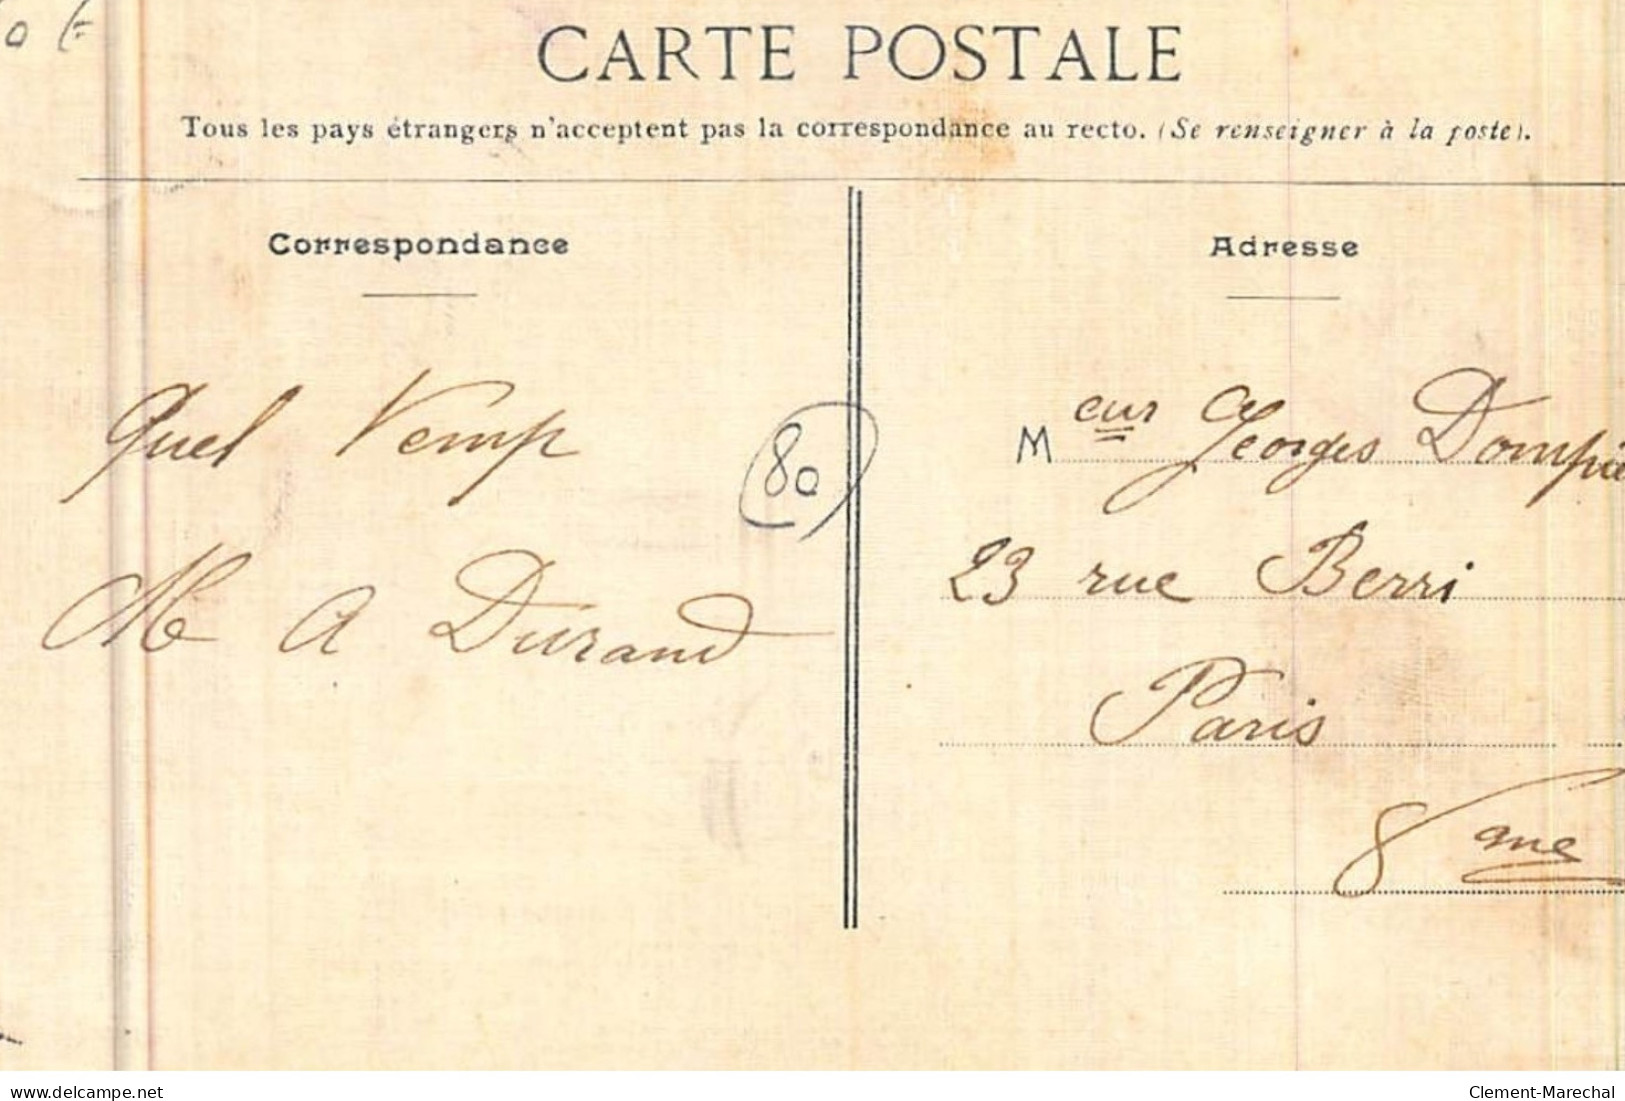 CARTE POSTALE
Tous les pays étrangers n'acceptent pas la correspondance au recto. (Se renseigner à la poste).
Correspondance
Quel Temp
80
A Durand
Adresse
Meur Georges
23 rue Berri
Paris
8eme
delcampe.net
Clement-Marechal